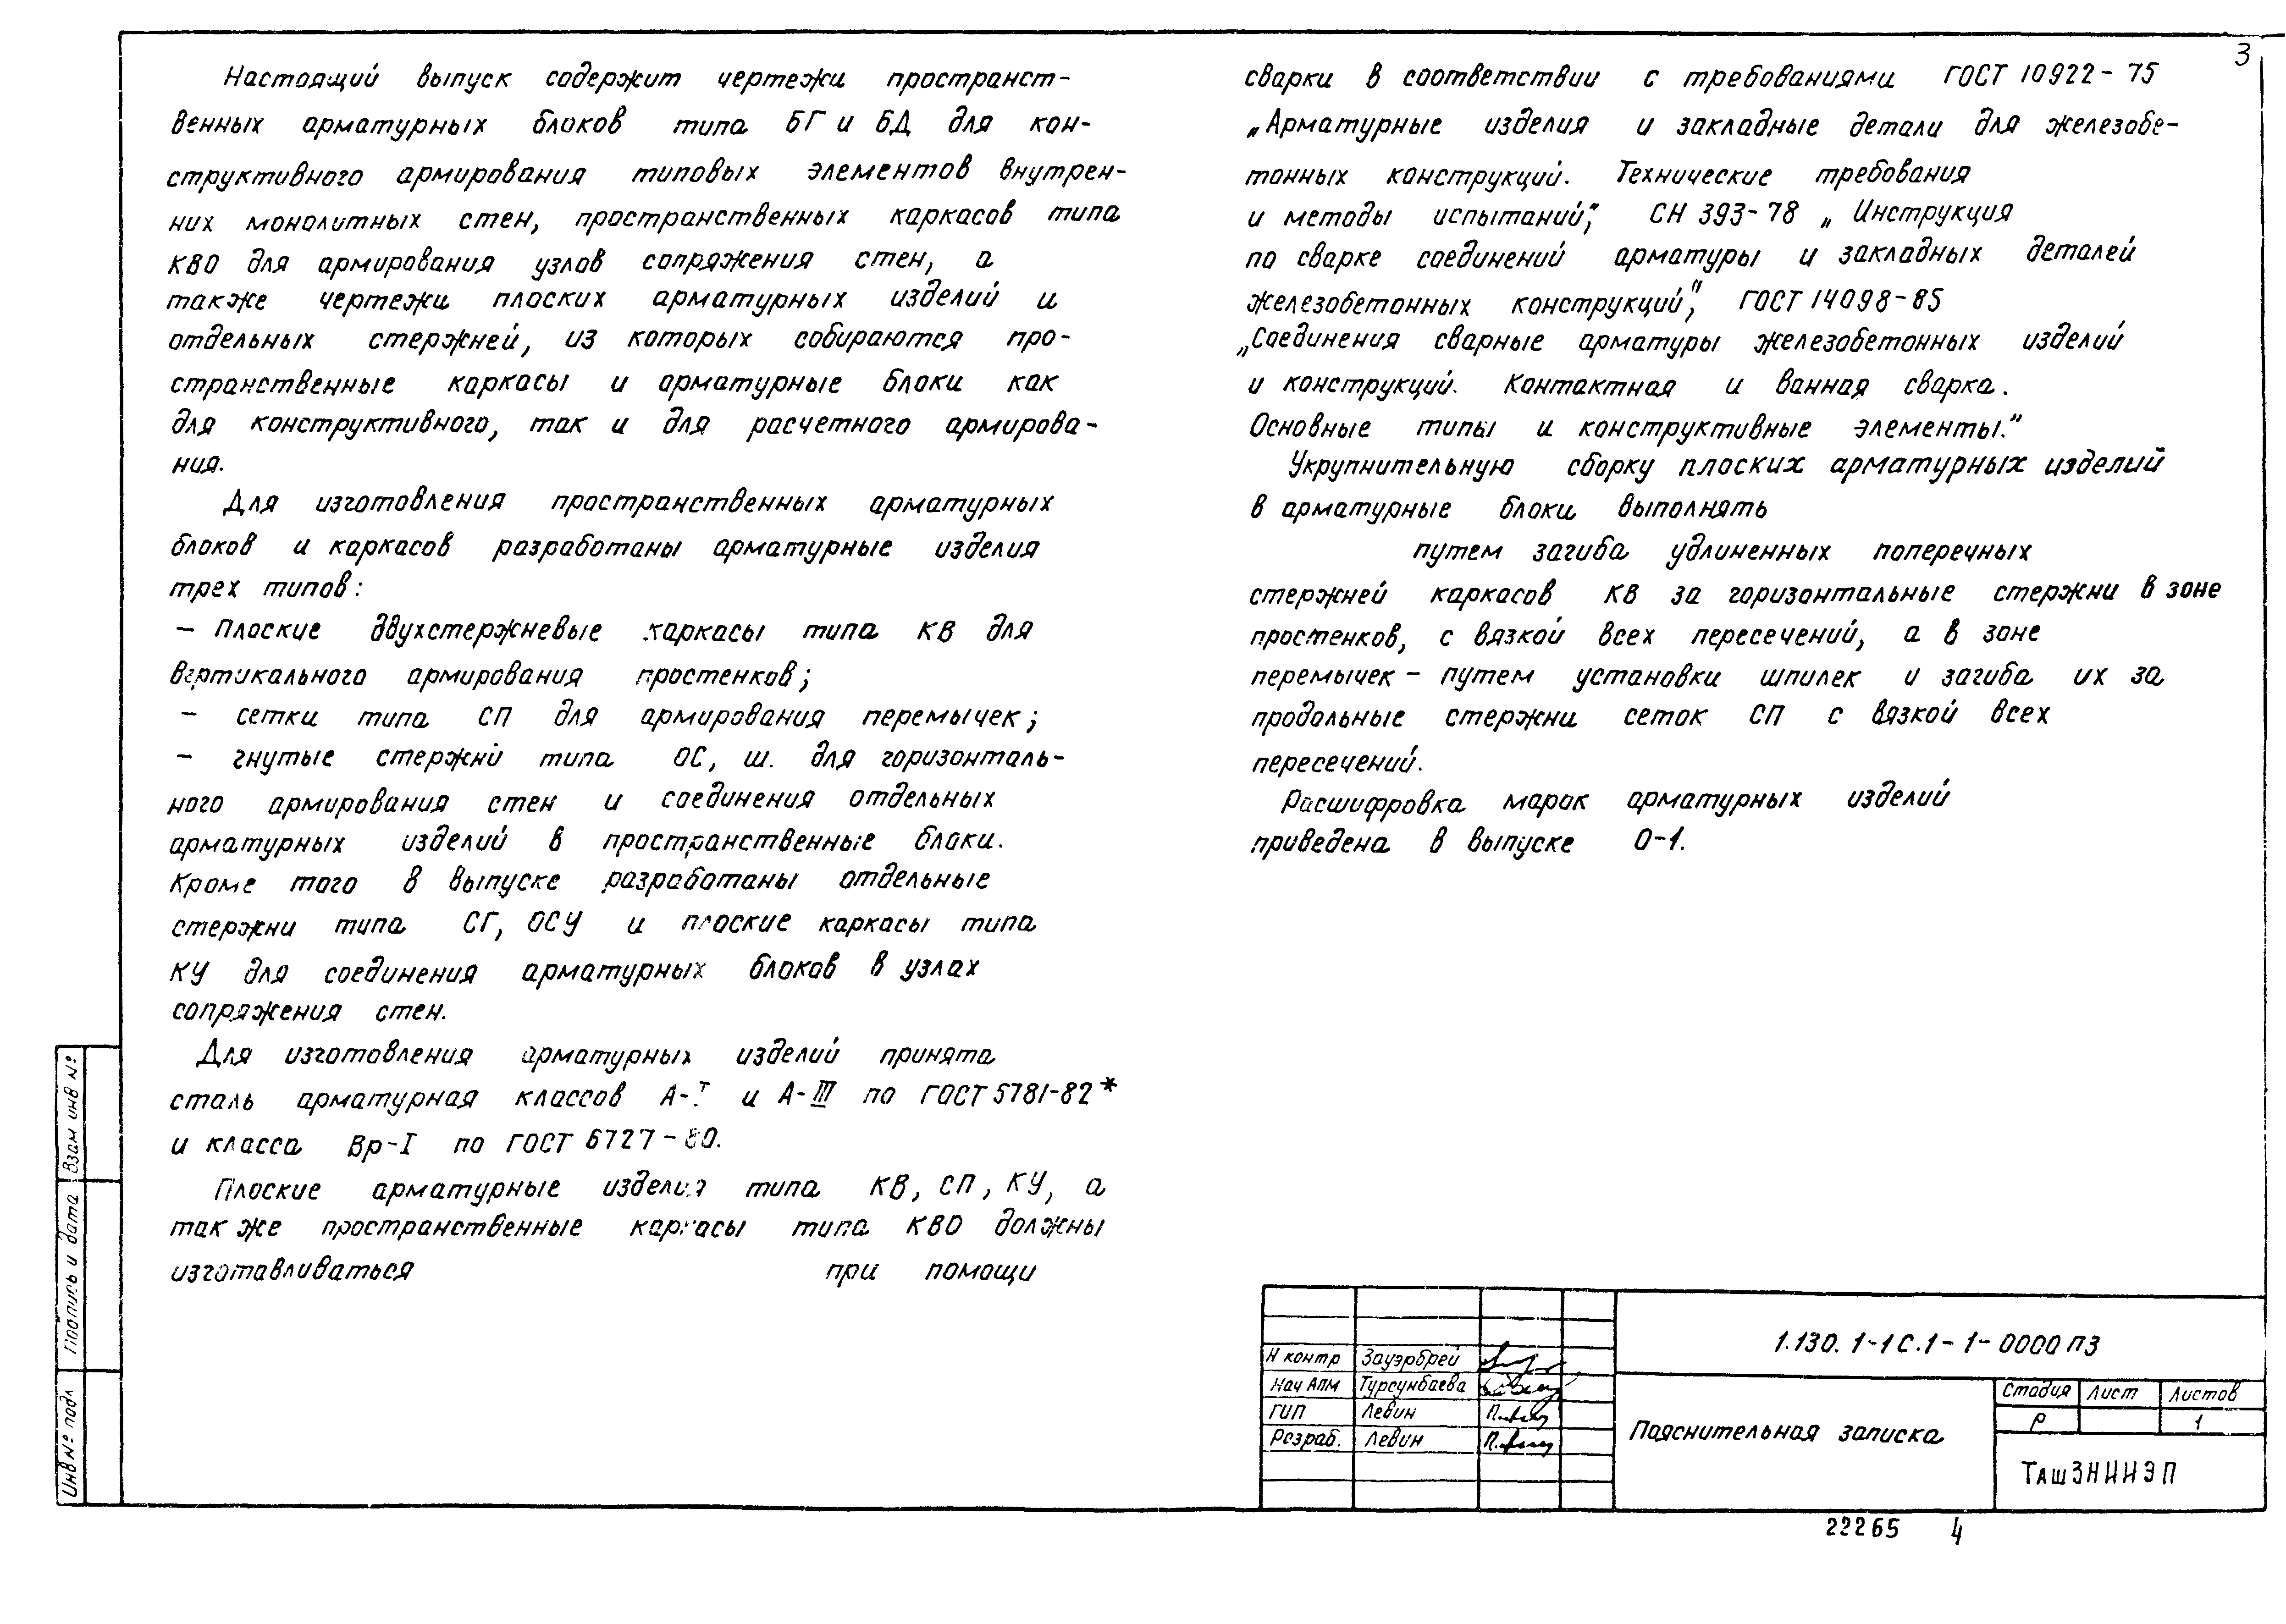 3
Настоящий выпуск содержит чертежи пространст-
венных арматурных блоков типа БГ и БД для кон-
структивного армирования типовых элементов внутрен-
них монолитных стен, пространственных каркасов типа
КВО для армирования узлов сопряжения стен, а
также чертежи плоских арматурных изделий и
отдельных стержней, из которых собираются про-
странственные каркасы и арматурные блоки как
для конструктивного, так и для расчетного армирова-
ния.
Для изготовления пространственных арматурных
блоков и каркасов разработаны арматурные изделия
трех типов:
– Плоские двухстержневые каркасы типа КВ для
вертикального армирования простенков;
– сетки типа СП для армирования перемычек;
– гнутые стержни типа ОС, ш. для горизонталь-
ного армирования стен и соединения отдельных
арматурных изделий в пространственные блоки.
Кроме того в выпуске разработаны отдельные
стержни типа СГ, ОСУ и плоские каркасы типа
КУ для соединения арматурных блоков в узлах
сопряжения стен.
Для изготовления арматурных изделий принята
сталь арматурная классов А-I и А-III по ГОСТ 5781-82*
и класса Вр-I по ГОСТ 6727-80.
Плоские арматурные изделия типа КВ, СП, КУ, а
так же пространственные каркасы типа КВО должны
изготавливаться при помощи
сварки в соответствии с требованиями ГОСТ 10922-75
„Арматурные изделия и закладные детали для железобе-
тонных конструкций. Технические требования
и методы испытаний", СН 393-78 „Инструкция
по сварке соединений арматуры и закладных деталей
железобетонных конструкций", ГОСТ 14098-85
„Соединения сварные арматуры железобетонных изделий
и конструкций. Контактная и ванная сварка.
Основные типы и конструктивные элементы."
Укрупнительную сборку плоских арматурных изделий
в арматурные блоки выполнять
путем загиба удлиненных поперечных
стержней каркасов КВ за горизонтальные стержни в зоне
простенков, с вязкой всех пересечений, а в зоне
перемычек – путем установки шпилек и загиба их за
продольные стержни сеток СП с вязкой всех
пересечений.
Расшифровка марок арматурных изделий
приведена в выпуске 0-1.
Взам инв №
Подпись и дата
Инв № подл
1.130.1-1с.1-1-0000 ПЗ
Н контр Зауэрбрей
Нач АПМ Турсунбаева
ГИП Левин
Разраб. Левин
Пояснительная записка
Стадия Лист Листов
Р 1
ТашЗНИИЭП
22265 4